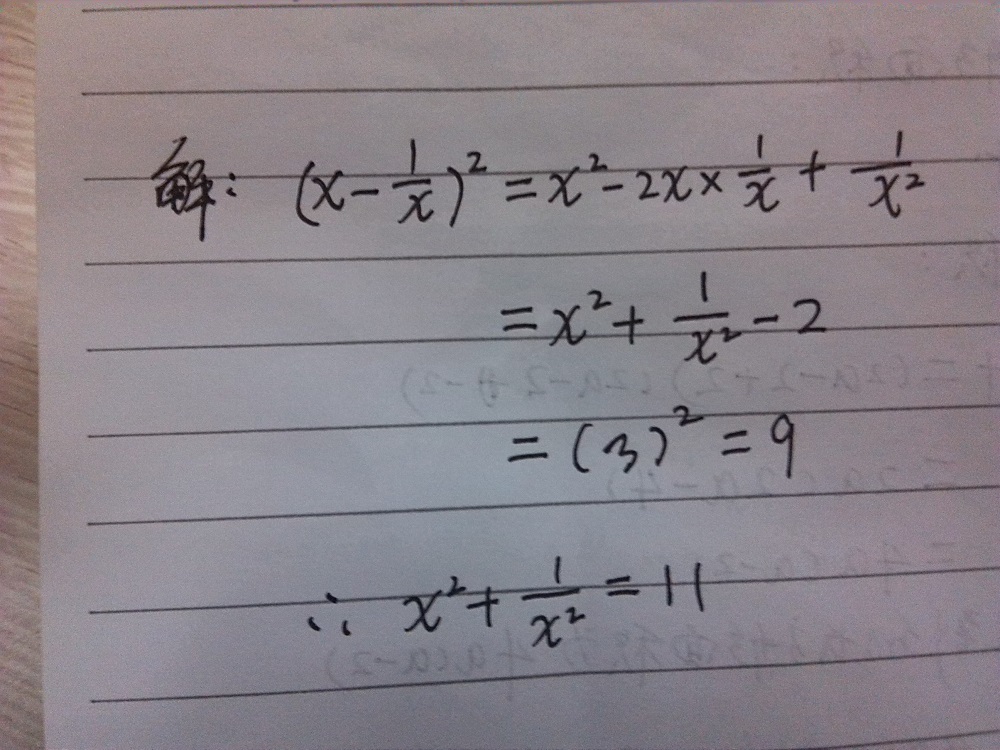 解: (x - 1/x)² = x² - 2x × 1/x + 1/x²
= x² + 1/x² - 2
= (3)² = 9
∴ x² + 1/x² = 11